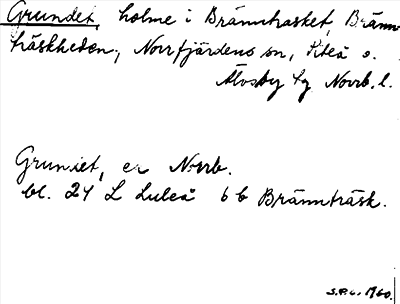 Grundet, holme i Brännträsket, Bränn-
träskheden, Norrfjärdens sn, Piteå o.
Älvsby tg Norrb. l.
Grundet, er Norrb.
bl. 24 L Luleå 6 b Brännträsk.
S.P.L. 1960.